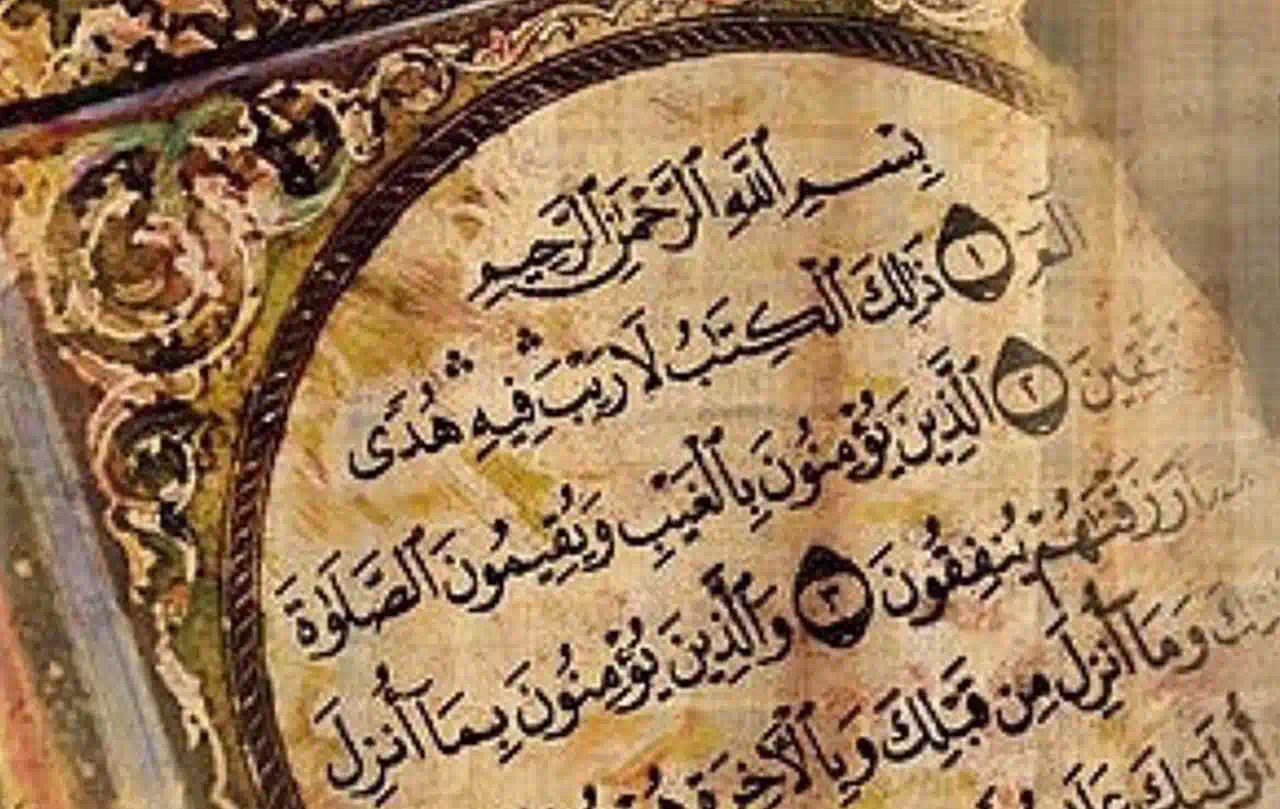 بِسْمِ ٱللَّهِ ٱلرَّحْمَٰنِ ٱلرَّحِيمِ
الٓمٓ ١ ذَٰلِكَ ٱلْكِتَٰبُ لَا رَيْبَ ۛ فِيهِ ۛ هُدًى
١ٱلَّذِينَ يُؤْمِنُونَ بِٱلْغَيْبِ وَيُقِيمُونَ ٱلصَّلَوٰةَ
رَزَقْنَٰهُمْ يُنفِقُونَ ٣ وَٱلَّذِينَ يُؤْمِنُونَ بِمَآ أُنزِلَ
وَمَآ أُنزِلَ مِن قَبْلِكَ وَبِٱلْءَاخِرَةِ
أُو۟لَٰٓئِكَ